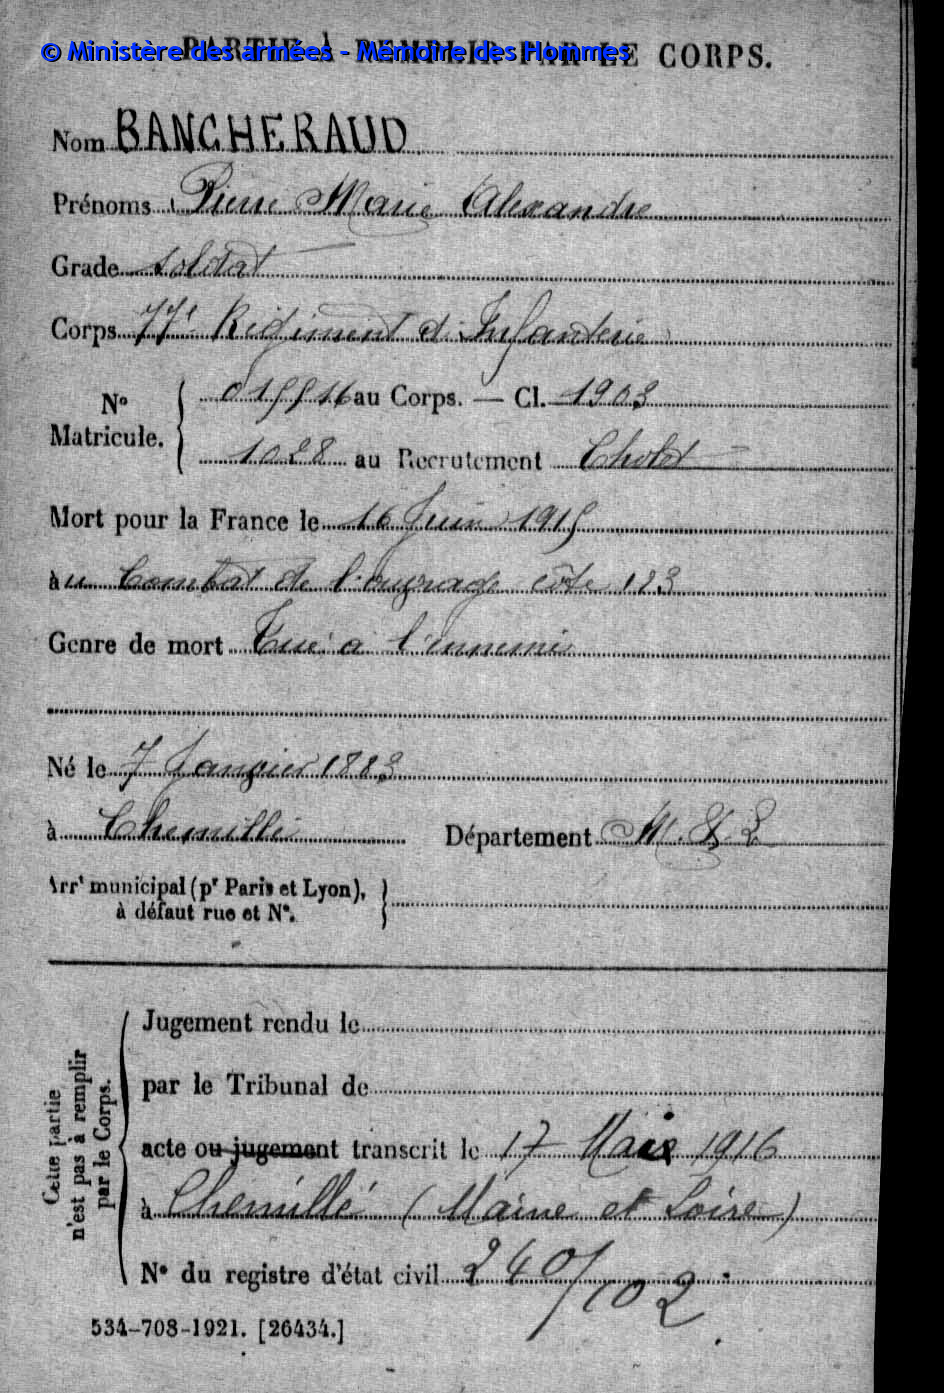 © Ministère des armées - Mémoire des Hommes
PARTIE À REMPLIR PAR LE CORPS.
Nom BANCHERAUD
Prénoms Pierre Marie Alexandre
Grade soldat
Corps 77e Régiment d'Infanterie
N° Matricule. 015516 au Corps. — Cl. 1903
1028 au Recrutement Cholet
Mort pour la France le 16 Juin 1915
àu Combat de l'ouvrage côte 123
Genre de mort Tué à l'ennemi
Né le 7 Janvier 1883
à Chemillé Département M. & L
Arrt municipal (pr Paris et Lyon),
à défaut rue et N°.
Cette partie
n'est pas à remplir
par le Corps.
Jugement rendu le
par le Tribunal de
acte ou jugement transcrit le 17 1916
à Chemillé (Maine et Loire)
N° du registre d'état civil 240/102
534-708-1921. [26434.]